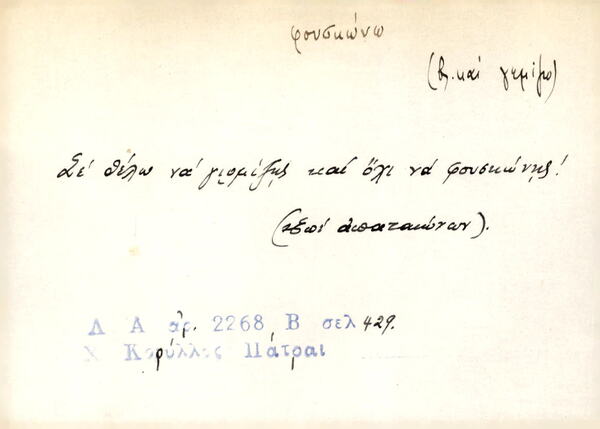 φουσκώνω
(βλ. καί γεμίζω)
Σέ θέλω νά γιομίζῃς καί ὄχι νά φουσκώνῃς!
(ἐπί ἀπατεώνων).
Λ Α ἀρ. 2268 Β σελ 429.
Χ Κορύλλος Πάτραι